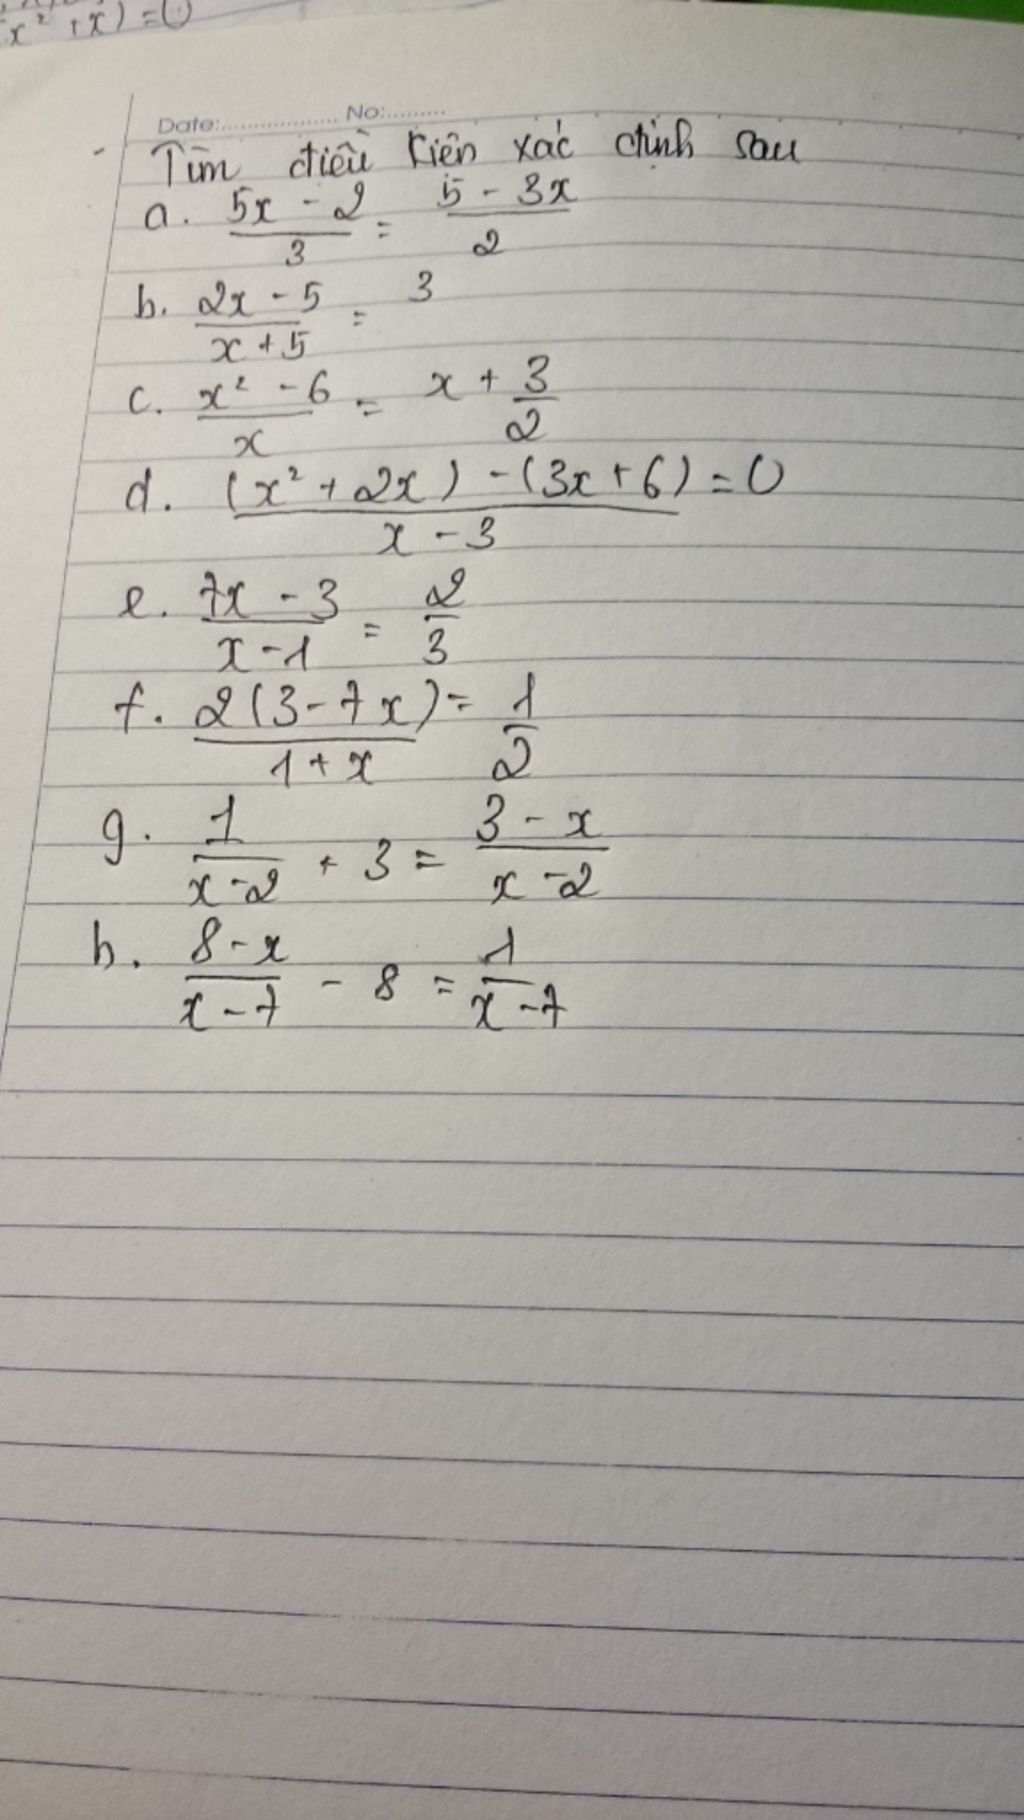 x² + x) = 0
Date:.................. No:.........
- Tìm điều kiện xác định sau
a. (5x - 2)/3 = (5 - 3x)/2
b. (2x - 5)/(x + 5) = 3
c. (x² - 6)/x = x + 3/2
d. ((x² + 2x) - (3x + 6))/(x - 3) = 0
e. (7x - 3)/(x - 1) = 2/3
f. 2(3 - 7x)/(1 + x) = 1/2
g. 1/(x - 2) + 3 = (3 - x)/(x - 2)
h. (8 - x)/(x - 7) - 8 = 1/(x - 7)